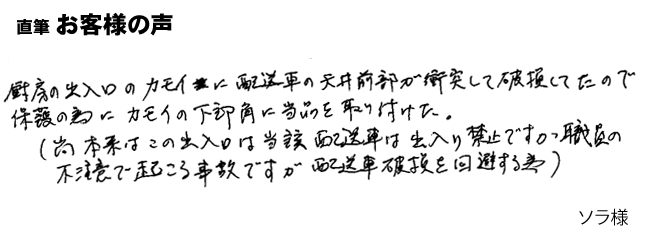 直筆 お客様の声
厨房の出入口のカモイに配送車の天井前部が衝突して破損してたので
保護の為にカモイの下部角に当品を取り付けた。
(尚本来はこの出入口は当該配送車は出入り禁止ですが職員の
不注意で起こる事故ですが配送車破損を回避する為)
ソラ様